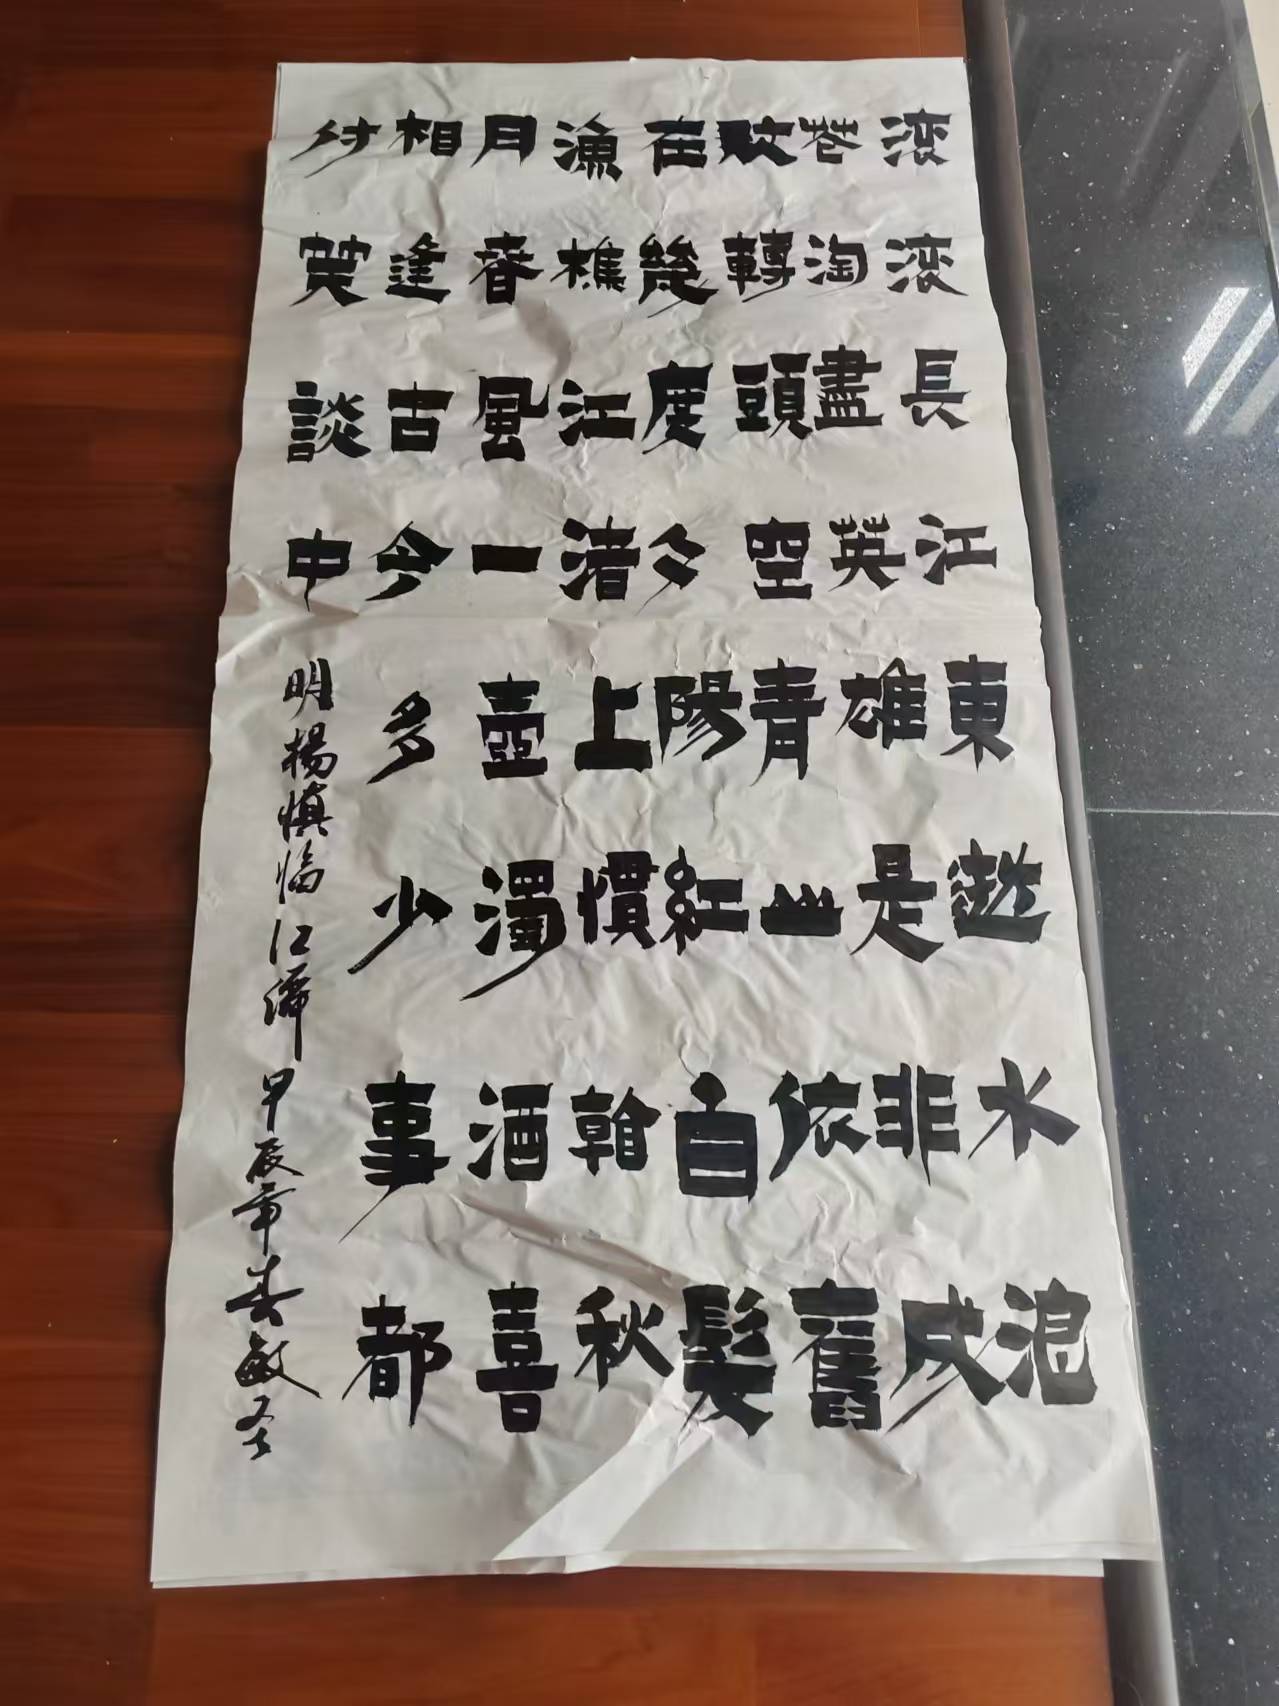 滚滚長江東逝水浪
花淘盡英雄是非成
敗轉頭空青山依舊
在幾度夕陽紅白髮
漁樵江渚上慣看秋
月春風一壺濁酒喜
相逢古今多少事都
付笑談中
明楊慎临江 甲辰年春敏